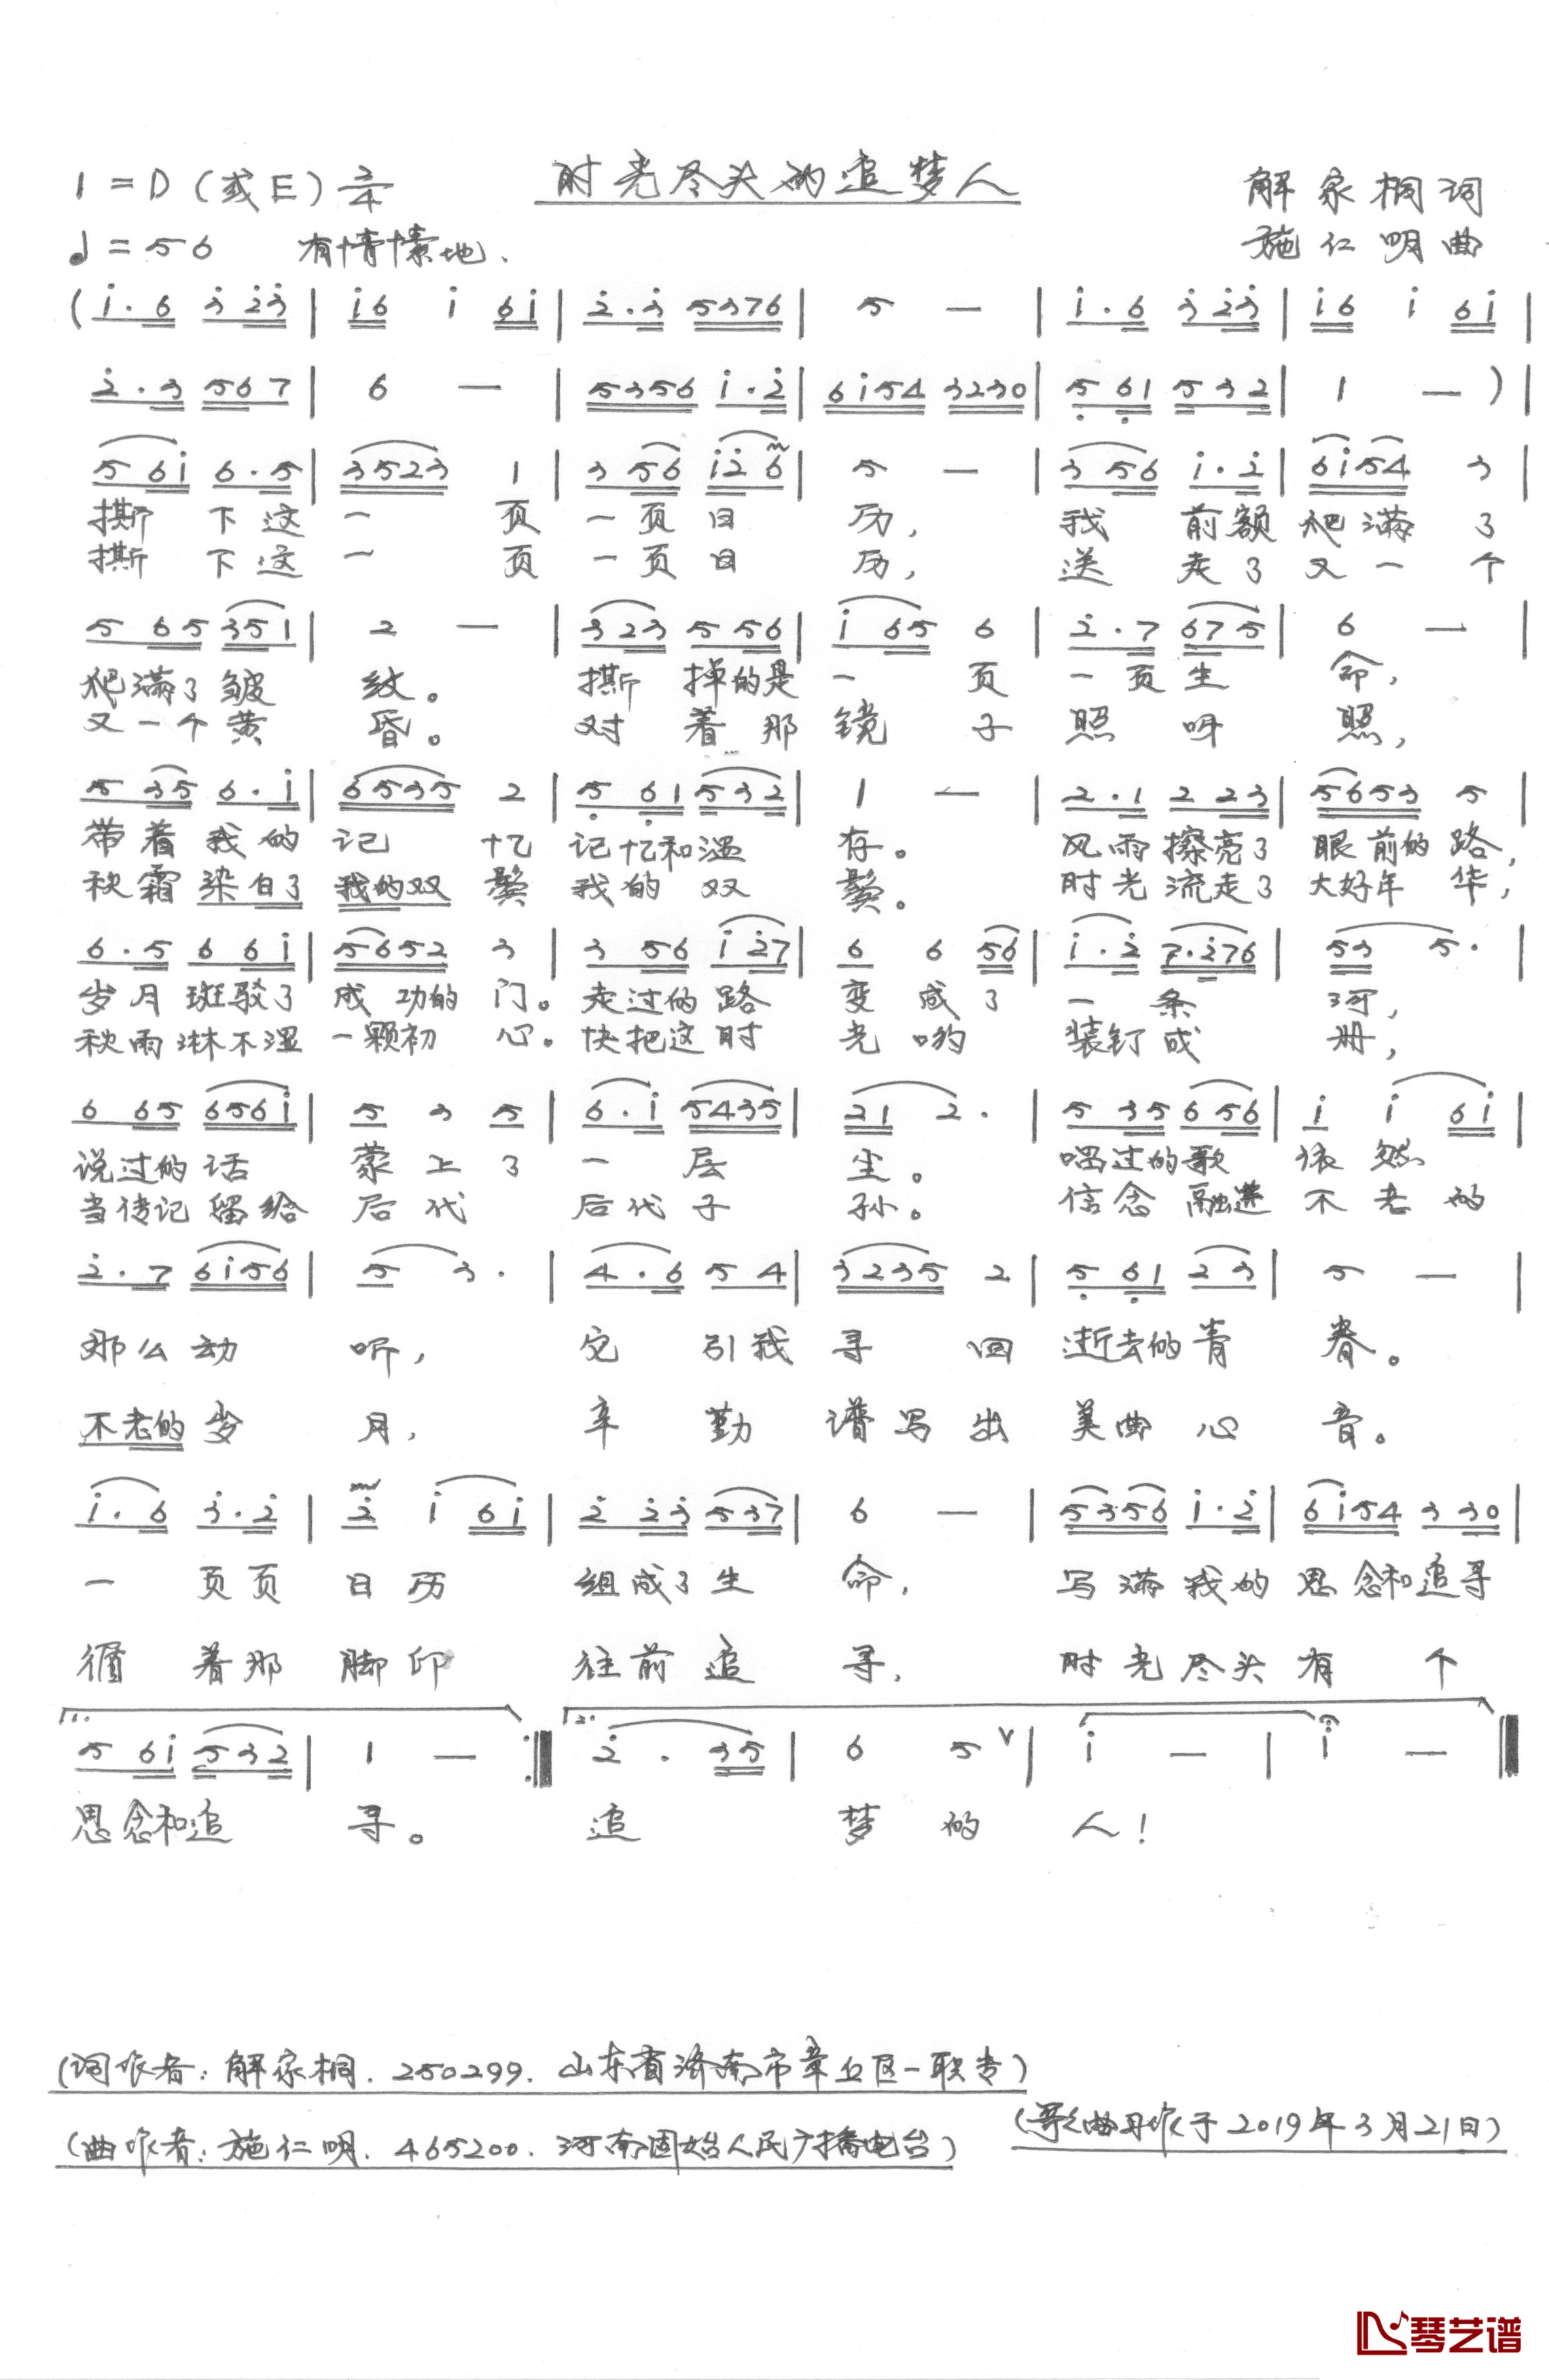 时光尽头的追梦人
1=D(或E) 2/4
解家桐词
♩=56 有情愫地.
施仁明曲
(i·6 3 23 | i6 i 6i | 2·3 5376 | 5 — | i·6 3 23 | i6 i 6i |
2·3 567 | 6 — | 5356 i·2 | 6i54 3230 | 5 61 532 | 1 — ) |
5 6i 6·5 | 3523 1 | 3 56 i2 6 | 5 — | 3 56 i·2 | 6i54 3 |
撕 下这 一 页 一页日 历, 我 前额 爬满 了
撕 下这 一 页 一页日 历, 送 走了 又一 个
5 65 351 | 2 — | 323 5 56 | i 65 6 | 2·7 675 | 6 — |
爬满了皱 纹。 撕 掉的是 一 页 一页生 命,
又一个黄 昏。 对 着那 镜 子 照呀 照,
5 35 6·i | 6535 2 | 5 61 532 | 1 — | 2·1 2 23 | 5653 5 |
带着我的 记 忆 记忆和温 存。 风雨擦亮了 眼前的路,
秋霜染白了 我的双 鬓 我的双 鬓。 时光流走了 大好年 华,
6·5 6 6i | 5652 3 | 3 56 i27 | 6 6 56 | i·2 7·276 | 53 5· |
岁月斑驳了 成功的 门。走过的路 变成了 一条 河,
秋雨淋不湿 一颗初 心。快把这时 光哟 装钉成 册,
6 65 656i | 5 3 5 | 6·i 5435 | 21 2· | 5 35 656 | i i 6i |
说过的话 蒙上了 一层 尘。 唱过的歌 依然
当传记留给 后代 后代子 孙。 信念融进 不老的
2·7 6i56 | 5 3· | 4·6 5 4 | 3235 2 | 5 61 23 | 5 — |
那么动 听, 它 引我寻 回 逝去的青 春。
不老的岁 月, 辛 勤 谱写出 美曲心 音。
i·6 3·2 | 2 i 6i | 2 23 537 | 6 — | 5356 i·2 | 6i54 3 30 |
一 页页 日历 组成了生 命, 写满我的 思念和追寻
循 着那 脚印 往前追 寻, 时光尽头有 个
1. 2.
5 6i 532 | 1 — :‖ 2· 35 | 6 5 ∨ | i — | i — ‖
思念和追 寻。 追 梦的 人!
(词作者:解家桐.250299.山东省济南市章丘区一职专)
(歌曲写作于2019年3月21日)
(曲作者:施仁明.465200.河南固始人民广播电台)
琴艺谱